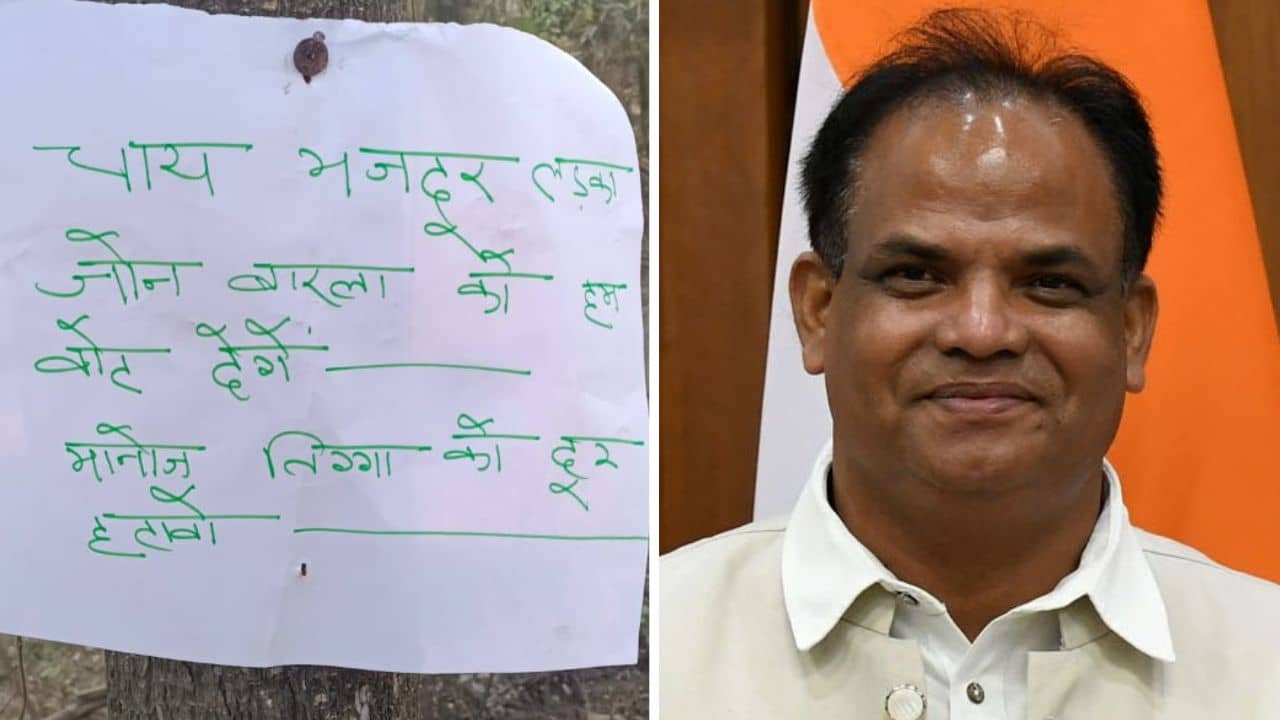 चाय मजदूर लड़का
जोन बारला को हम
बोट देगें
मानोज तिग्गा को दूर
हटावो